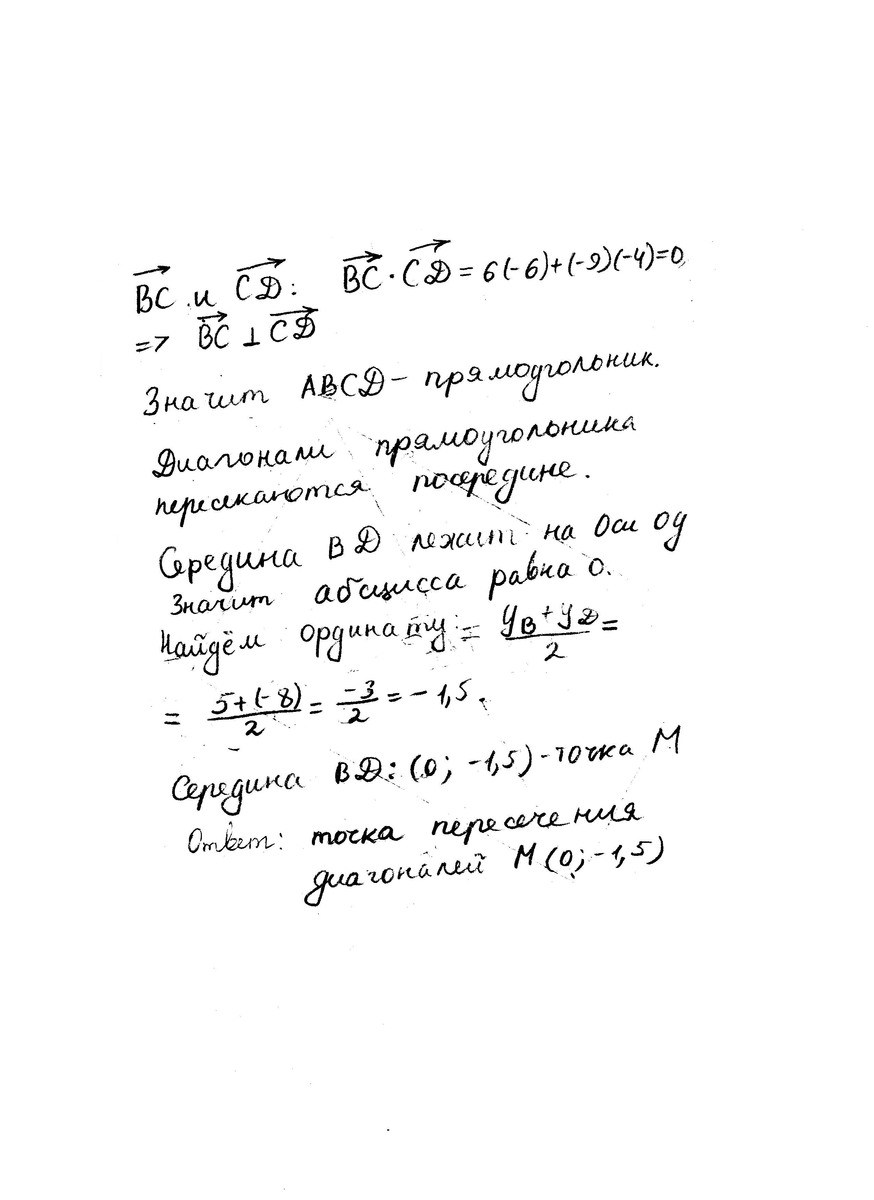 BC и CD: BC · CD = 6(-6)+(-9)(-4)=0
=> BC ⊥ CD
Значит ABCD – прямоугольник.
Диагонали прямоугольника
пересекаются посередине.
Середина BD лежит на Оси Oy
Значит абсцисса равна 0.
Найдём ординату: = (yB+yD)/2 =
= (5+(-8))/2 = -3/2 = -1,5.
Середина BD: (0; -1,5) - точка M
Ответ: точка пересечения
диагоналей M (0; -1,5)